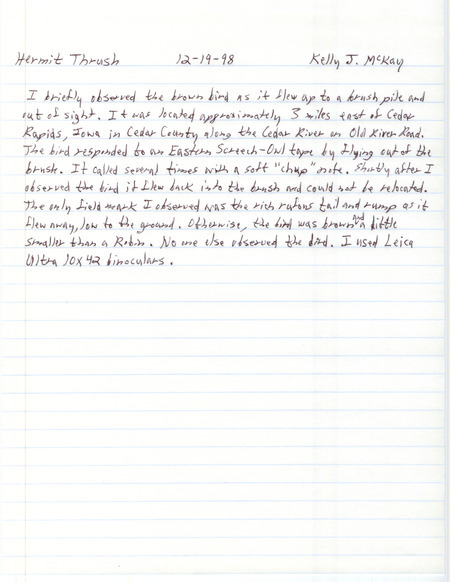 Hermit Thrush 12-19-98 Kelly J. McKay
I briefly observed the brown bird as it flew up to a brush pile and
out of sight. It was located approximately 3 miles east of Cedar
Rapids, Iowa in Cedar County along the Cedar River on Old River Road.
The bird responded to an Eastern Screech-Owl tape by flying out of the
brush. It called several times with a soft "chup" note. Shortly after I
observed the bird it flew back into the brush and could not be relocated.
The only field mark I observed was the rich rufous tail and rump as it
flew away, low to the ground. Otherwise, the bird was brown and a little
smaller than a Robin. No one else observed the bird. I used Leica
Ultra 10x42 binoculars.